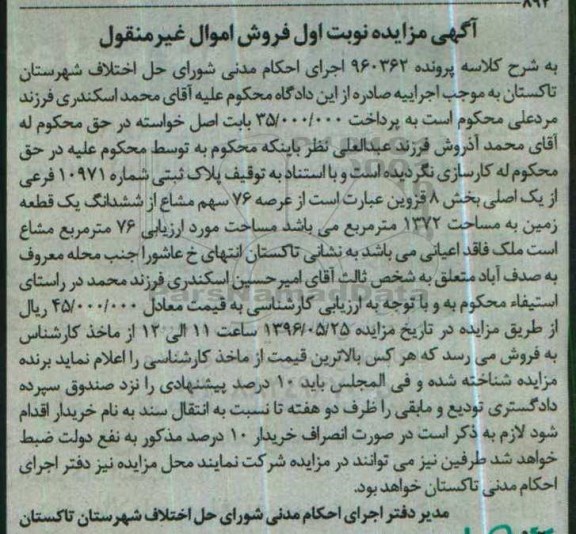 ۸۹۲
آگهی مزایده نوبت اول فروش اموال غیرمنقول
به شرح کلاسه پرونده ۹۶۰۳۶۲ اجرای احکام مدنی شورای حل اختلاف شهرستان
تاکستان به موجب اجراییه صادره از این دادگاه محکوم علیه آقای محمد اسکندری فرزند
مردعلی محکوم است به پرداخت ۳۵/۰۰۰/۰۰۰ بابت اصل خواسته در حق محکوم له
آقای محمد آذروش فرزند عبدالعلی نظر باینکه محکوم به توسط محکوم علیه در حق
محکوم له کارسازی نگردیده است و با استناد به توقیف پلاک ثبتی شماره ۱۰۹۷۱ فرعی
از یک اصلی بخش ۸ قزوین عبارت است از عرصه ۷۶ سهم مشاع از ششدانگ یک قطعه
زمین به مساحت ۱۳۷۲ مترمربع می باشد مساحت مورد ارزیابی ۷۶ مترمربع مشاع
است ملک فاقد اعیانی می باشد به نشانی تاکستان انتهای خ عاشورا جنب محله معروف
به صدف آباد متعلق به شخص ثالث آقای امیرحسین اسکندری فرزند محمد در راستای
استیفاء محکوم به و با توجه به ارزیابی کارشناسی به قیمت معادل ۴۵/۰۰۰/۰۰۰ ریال
از طریق مزایده در تاریخ مزایده ۱۳۹۶/۰۵/۲۵ ساعت ۱۱ الی ۱۲ از ماخذ کارشناس
به فروش می رسد که هر کس بالاترین قیمت از ماخذ کارشناسی را اعلام نماید برنده
مزایده شناخته شده و فی المجلس باید ۱۰ درصد پیشنهادی را نزد صندوق سپرده
دادگستری تودیع و مابقی را ظرف دو هفته تا نسبت به انتقال سند به نام خریدار اقدام
شود لازم به ذکر است در صورت انصراف خریدار ۱۰ درصد مذکور به نفع دولت ضبط
خواهد شد طرفین نیز می توانند در مزایده شرکت نمایند محل مزایده نیز دفتر اجرای
احکام مدنی تاکستان خواهد بود.
مدیر دفتر اجرای احکام مدنی شورای حل اختلاف شهرستان تاکستان